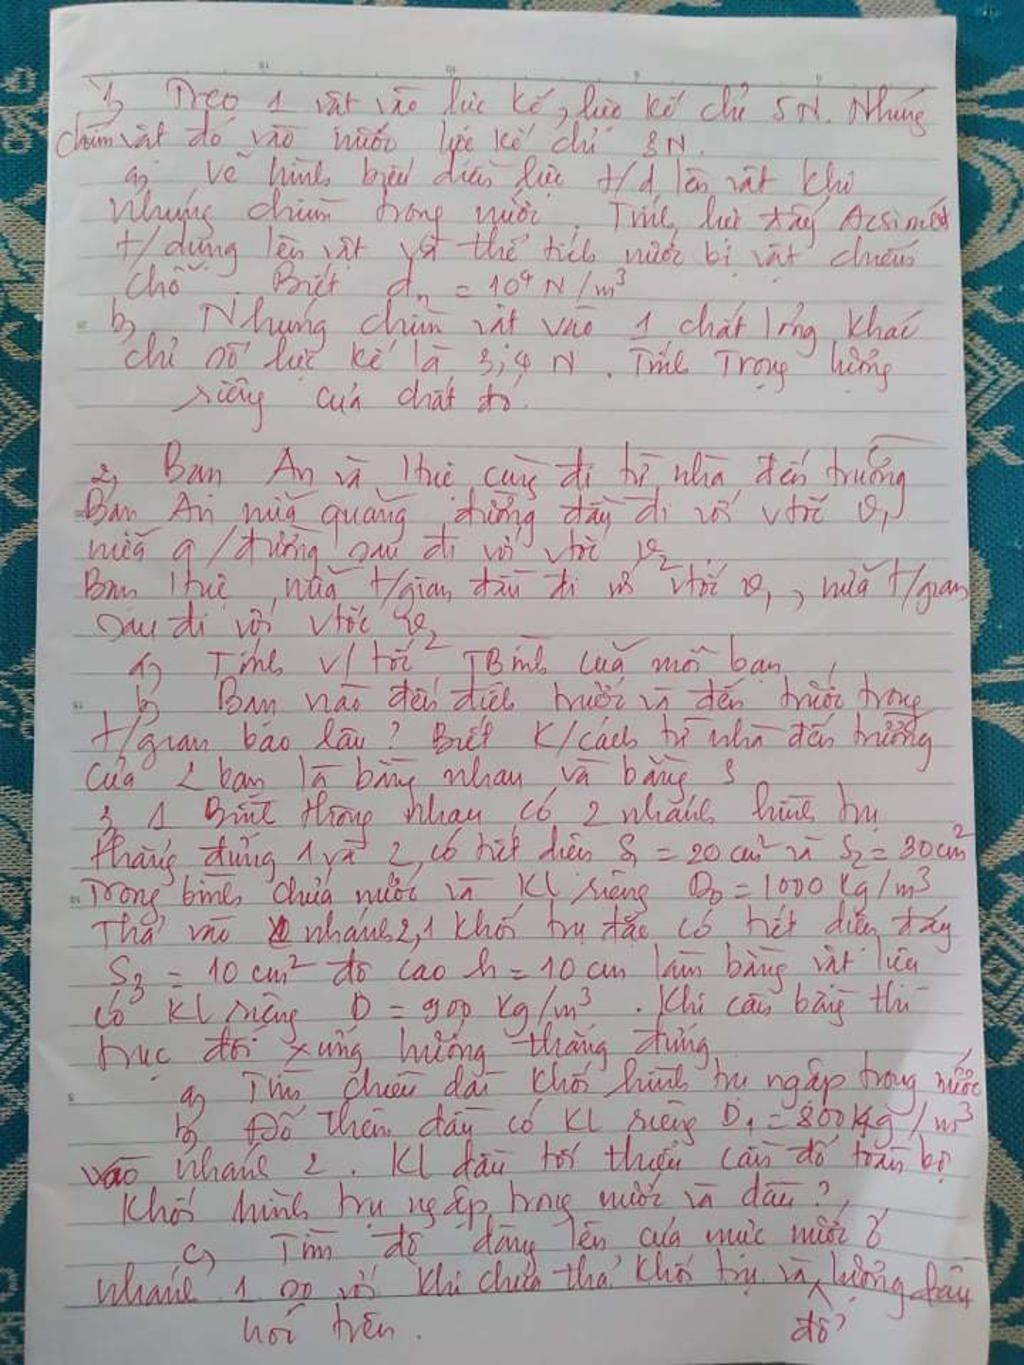 1, Treo 1 vật vào lực kế, lực kế chỉ 5N. Nhúng
chìm vật đó vào nước lực kế chỉ 3N.
a, Vẽ hình biểu diễn lực t/d lên vật khi
nhúng chìm trong nước. Tính lực đẩy Acsimét
t/dụng lên vật và thể tích nước bị vật chiếm
chỗ. Biết dn = 10⁴ N/m³
b, Nhúng chìm vật vào 1 chất lỏng khác
chỉ số lực kế là 3,4 N. Tính Trọng lượng
riêng của chất đó.
2, Bạn An và Huê cùng đi từ nhà đến trường
Bạn An nửa quãng đường đầu đi với vtốc v₁,
nửa q/đường sau đi với vtốc v₂
Bạn Huê nửa t/gian đầu đi với vtốc v₁, nửa t/gian
sau đi với vtốc v₂
a, Tính v/tốc TBình của mỗi bạn
b, Bạn nào đến đích trước và đến trước trong
t/gian bao lâu? Biết K/cách từ nhà đến trường
của 2 bạn là bằng nhau và bằng S
3, 1 Bình thông nhau có 2 nhánh hình trụ
thẳng đứng 1 và 2, có tiết diện S₁ = 20 cm² và S₂ = 30cm²
Trong bình chứa nước và KL riêng D₀ = 1000 kg/m³
Thả vào nhánh 2, 1 khối trụ đặc có tiết diện đáy
S₃ = 10 cm² độ cao h = 10 cm làm bằng vật liệu
có KL riêng D = 900 kg/m³. Khi cân bằng thì
trục đối xứng hướng thẳng đứng
a, Tìm chiều dài khối hình trụ ngập trong nước
b, Đổ thêm dầu có KL riêng D₁ = 800kg/m³
vào nhánh 2. KL dầu tối thiểu cần đổ toàn bộ
khối hình trụ ngập trong nước và dầu?
c, Tìm độ dâng lên của mực nước ở
nhánh 1 so với khi chưa thả khối trụ và lượng dầu
nói trên. đổ?